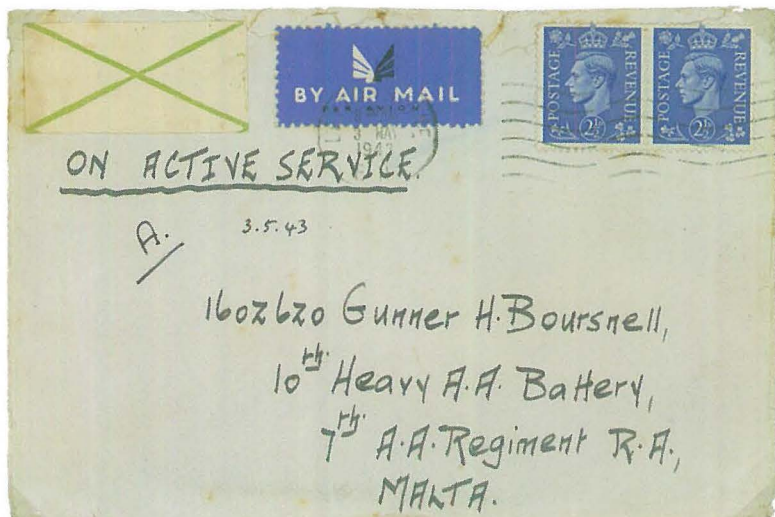 BY AIR MAIL
PAR AVION
POSTAGE REVENUE 2½
POSTAGE REVENUE 2½
3 MAY
1943
ON ACTIVE SERVICE.
A.
3.5.43
1602620 Gunner H. Boursnell,
10th. Heavy A.A. Battery,
7th. A.A. Regiment R.A.,
MALTA.